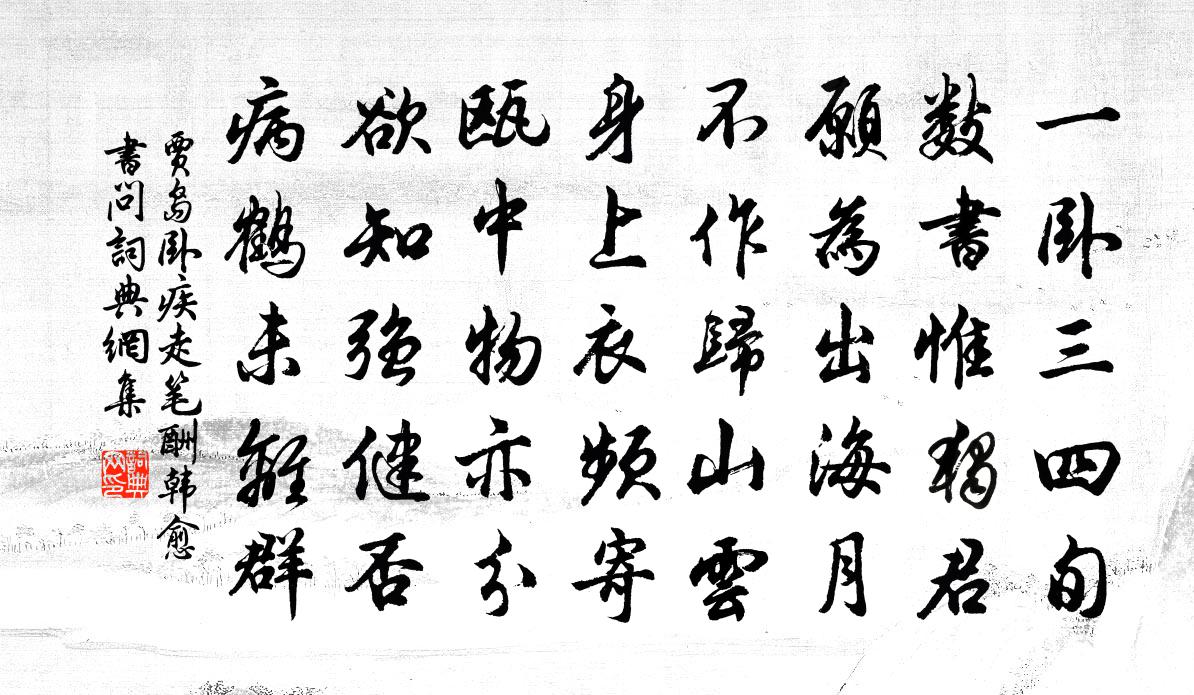 一卧三四旬
數書惟獨君
願為出海月
不作歸山雲
身上衣頻寄
瓯中物亦分
欲知强健否
病鶴未離群
賈島卧疾走笔酬韩愈
書問詞典網集
詞典网印